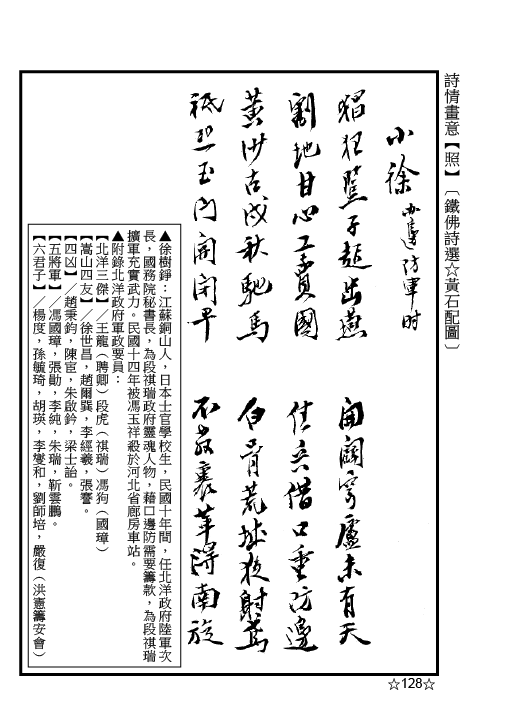 詩情畫意【照】〔鐵佛詩選☆黃石配圖〕
小徐 办邊防軍時
猖狂豎子出燕 開闢穹廬未有天
割地甘心工賣國 佳兵借口重防邊
黃沙古戍秋馳馬 白骨荒城夜射鳶
祗恐玉門開閉早 不教裹革得南旋
▲徐樹錚：江蘇銅山人，日本士官學校生，民國十年間，任北洋政府陸軍次
長，國務院秘書長，為段祺瑞政府靈魂人物，藉口邊防需要籌款，為段祺瑞
擴軍充實武力。民國十四年被馮玉祥殺於河北省廊房車站。
▲附錄北洋政府軍政要員：
【北洋三傑】／王龍（聘卿）段虎（祺瑞）馮狗（國璋）
【嵩山四友】／徐世昌，趙爾巽，李經羲，張謇。
【四凶】／趙秉鈞，陳宧，朱啟鈐，梁士詒。
【五將軍】／馮國璋，張勛，李純，朱瑞，靳雲鵬。
【六君子】／楊度，孫毓琦，胡瑛，李燮和，劉師培，嚴復（洪憲籌安會）
☆128☆